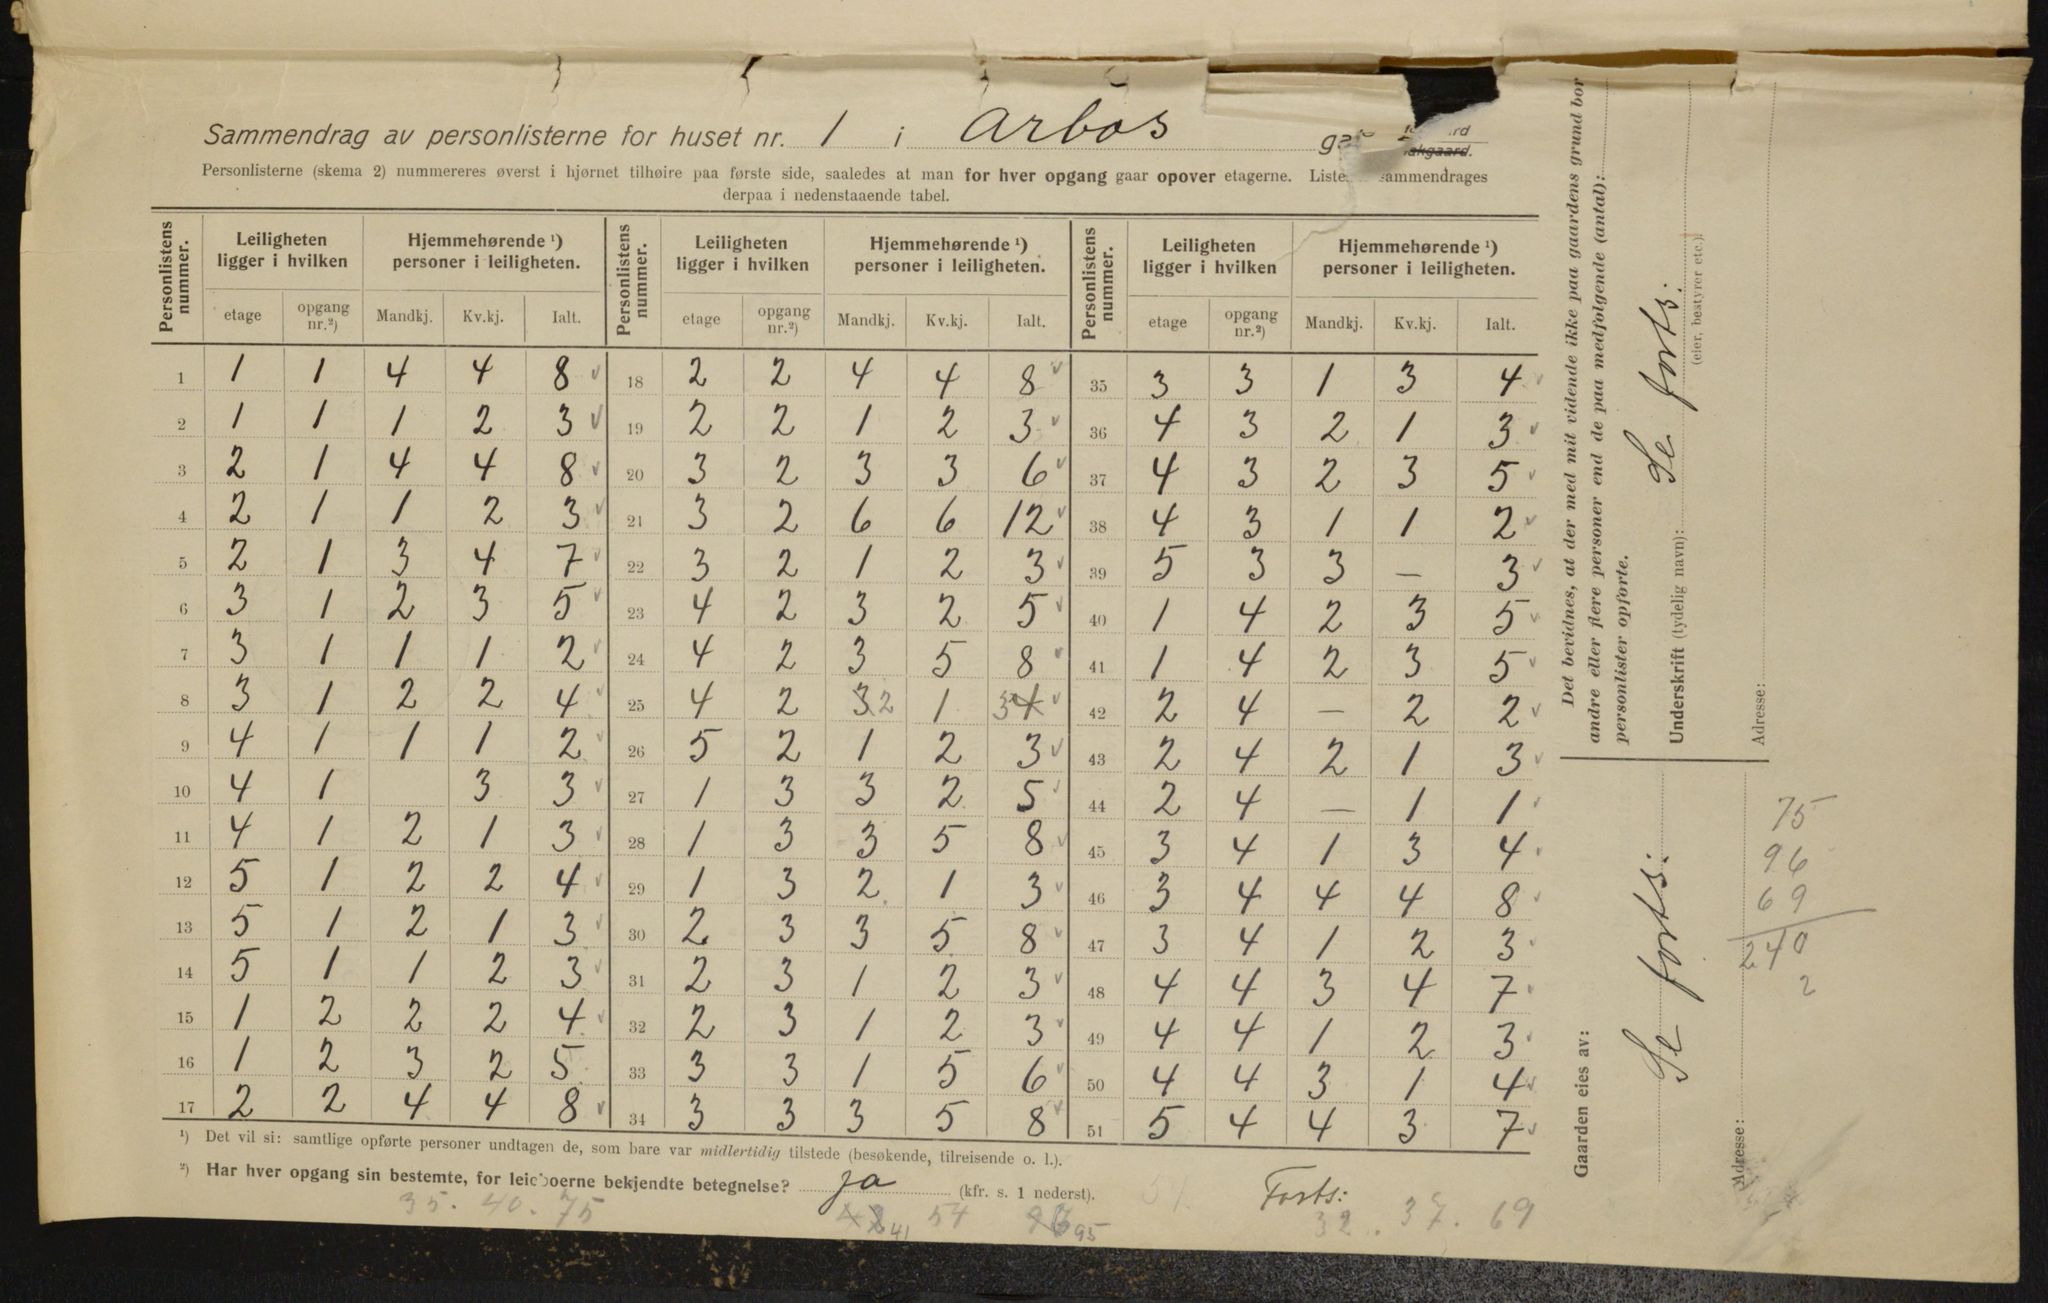 Sammendrag av personlisterne for huset nr. 1 i Arbos
Personlisterne (skema 2) nummereres øverst i hjørnet tilhøire paa første side, saaledes at man for hver opgang gaar opover etagerne. sammendrages
derpaa i nedenstaaende tabel.
Personlistens nummer. Leiligheten ligger i hvilken Hjemmehørende ¹) personer i leiligheten. Personlistens nummer. Leiligheten ligger i hvilken Hjemmehørende ¹) personer i leiligheten. Personlistens nummer. Leiligheten ligger i hvilken Hjemmehørende ¹) personer i leiligheten.
etage opgang nr.²) Mandkj. Kv.kj. Ialt. etage opgang nr.²) Mandkj. Kv.kj. Ialt. etage opgang nr.²) Mandkj. Kv.kj. Ialt.
1 1 1 4 4 8 18 2 2 4 4 8 35 3 3 1 3 4
2 1 1 1 2 3 19 2 2 1 2 3 36 4 3 2 1 3
3 2 1 4 4 8 20 3 2 3 3 6 37 4 3 2 3 5
4 2 1 1 2 3 21 3 2 6 6 12 38 4 3 1 1 2
5 2 1 3 4 7 22 3 2 1 2 3 39 5 3 3 — 3
6 3 1 2 3 5 23 4 2 3 2 5 40 1 4 2 3 5
7 3 1 1 1 2 24 4 2 3 5 8 41 1 4 2 3 5
8 3 1 2 2 4 25 4 2 3 2 1 3 4 42 2 4 — 2 2
9 4 1 1 1 2 26 5 2 1 2 3 43 2 4 2 1 3
10 4 1 3 3 27 1 3 3 2 5 44 2 4 — 1 1
11 4 1 2 1 3 28 1 3 3 5 8 45 3 4 1 3 4
12 5 1 2 2 4 29 1 3 2 1 3 46 3 4 4 4 8
13 5 1 2 1 3 30 2 3 3 5 8 47 3 4 1 2 3
14 5 1 1 2 3 31 2 3 1 2 3 48 4 4 3 4 7
15 1 2 2 2 4 32 2 3 1 2 3 49 4 4 1 2 3
16 1 2 3 2 5 33 3 3 1 5 6 50 4 4 3 1 4
17 2 2 4 4 8 34 3 3 3 5 8 51 5 4 4 3 7
¹) Det vil si: samtlige opførte personer undtagen de, som bare var midlertidig tilstede (besøkende, tilreisende o. l.).
²) Har hver opgang sin bestemte, for leieboerne bekjendte betegnelse? Ja (kfr. s. 1 nederst). Forts:
35. 40. 75 41 54 95 32. 37. 69
Det bevidnes, at der med mit vidende ikke paa gaardens grund bor
andre eller flere personer end de paa medfølgende (antal):
personlister opførte.
Underskrift (tydelig navn): Se forts:
(eier, bestyrer etc.)
Adresse:
Gaarden eies av:
Se forts:
Adresse:
75
96
69
240
2